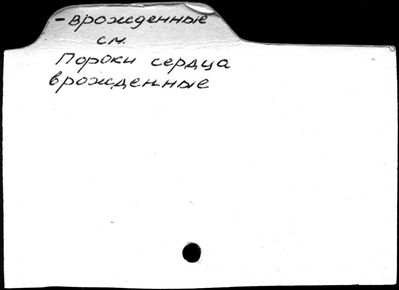 -врожденные
см.
Пороки сердца
врожденные